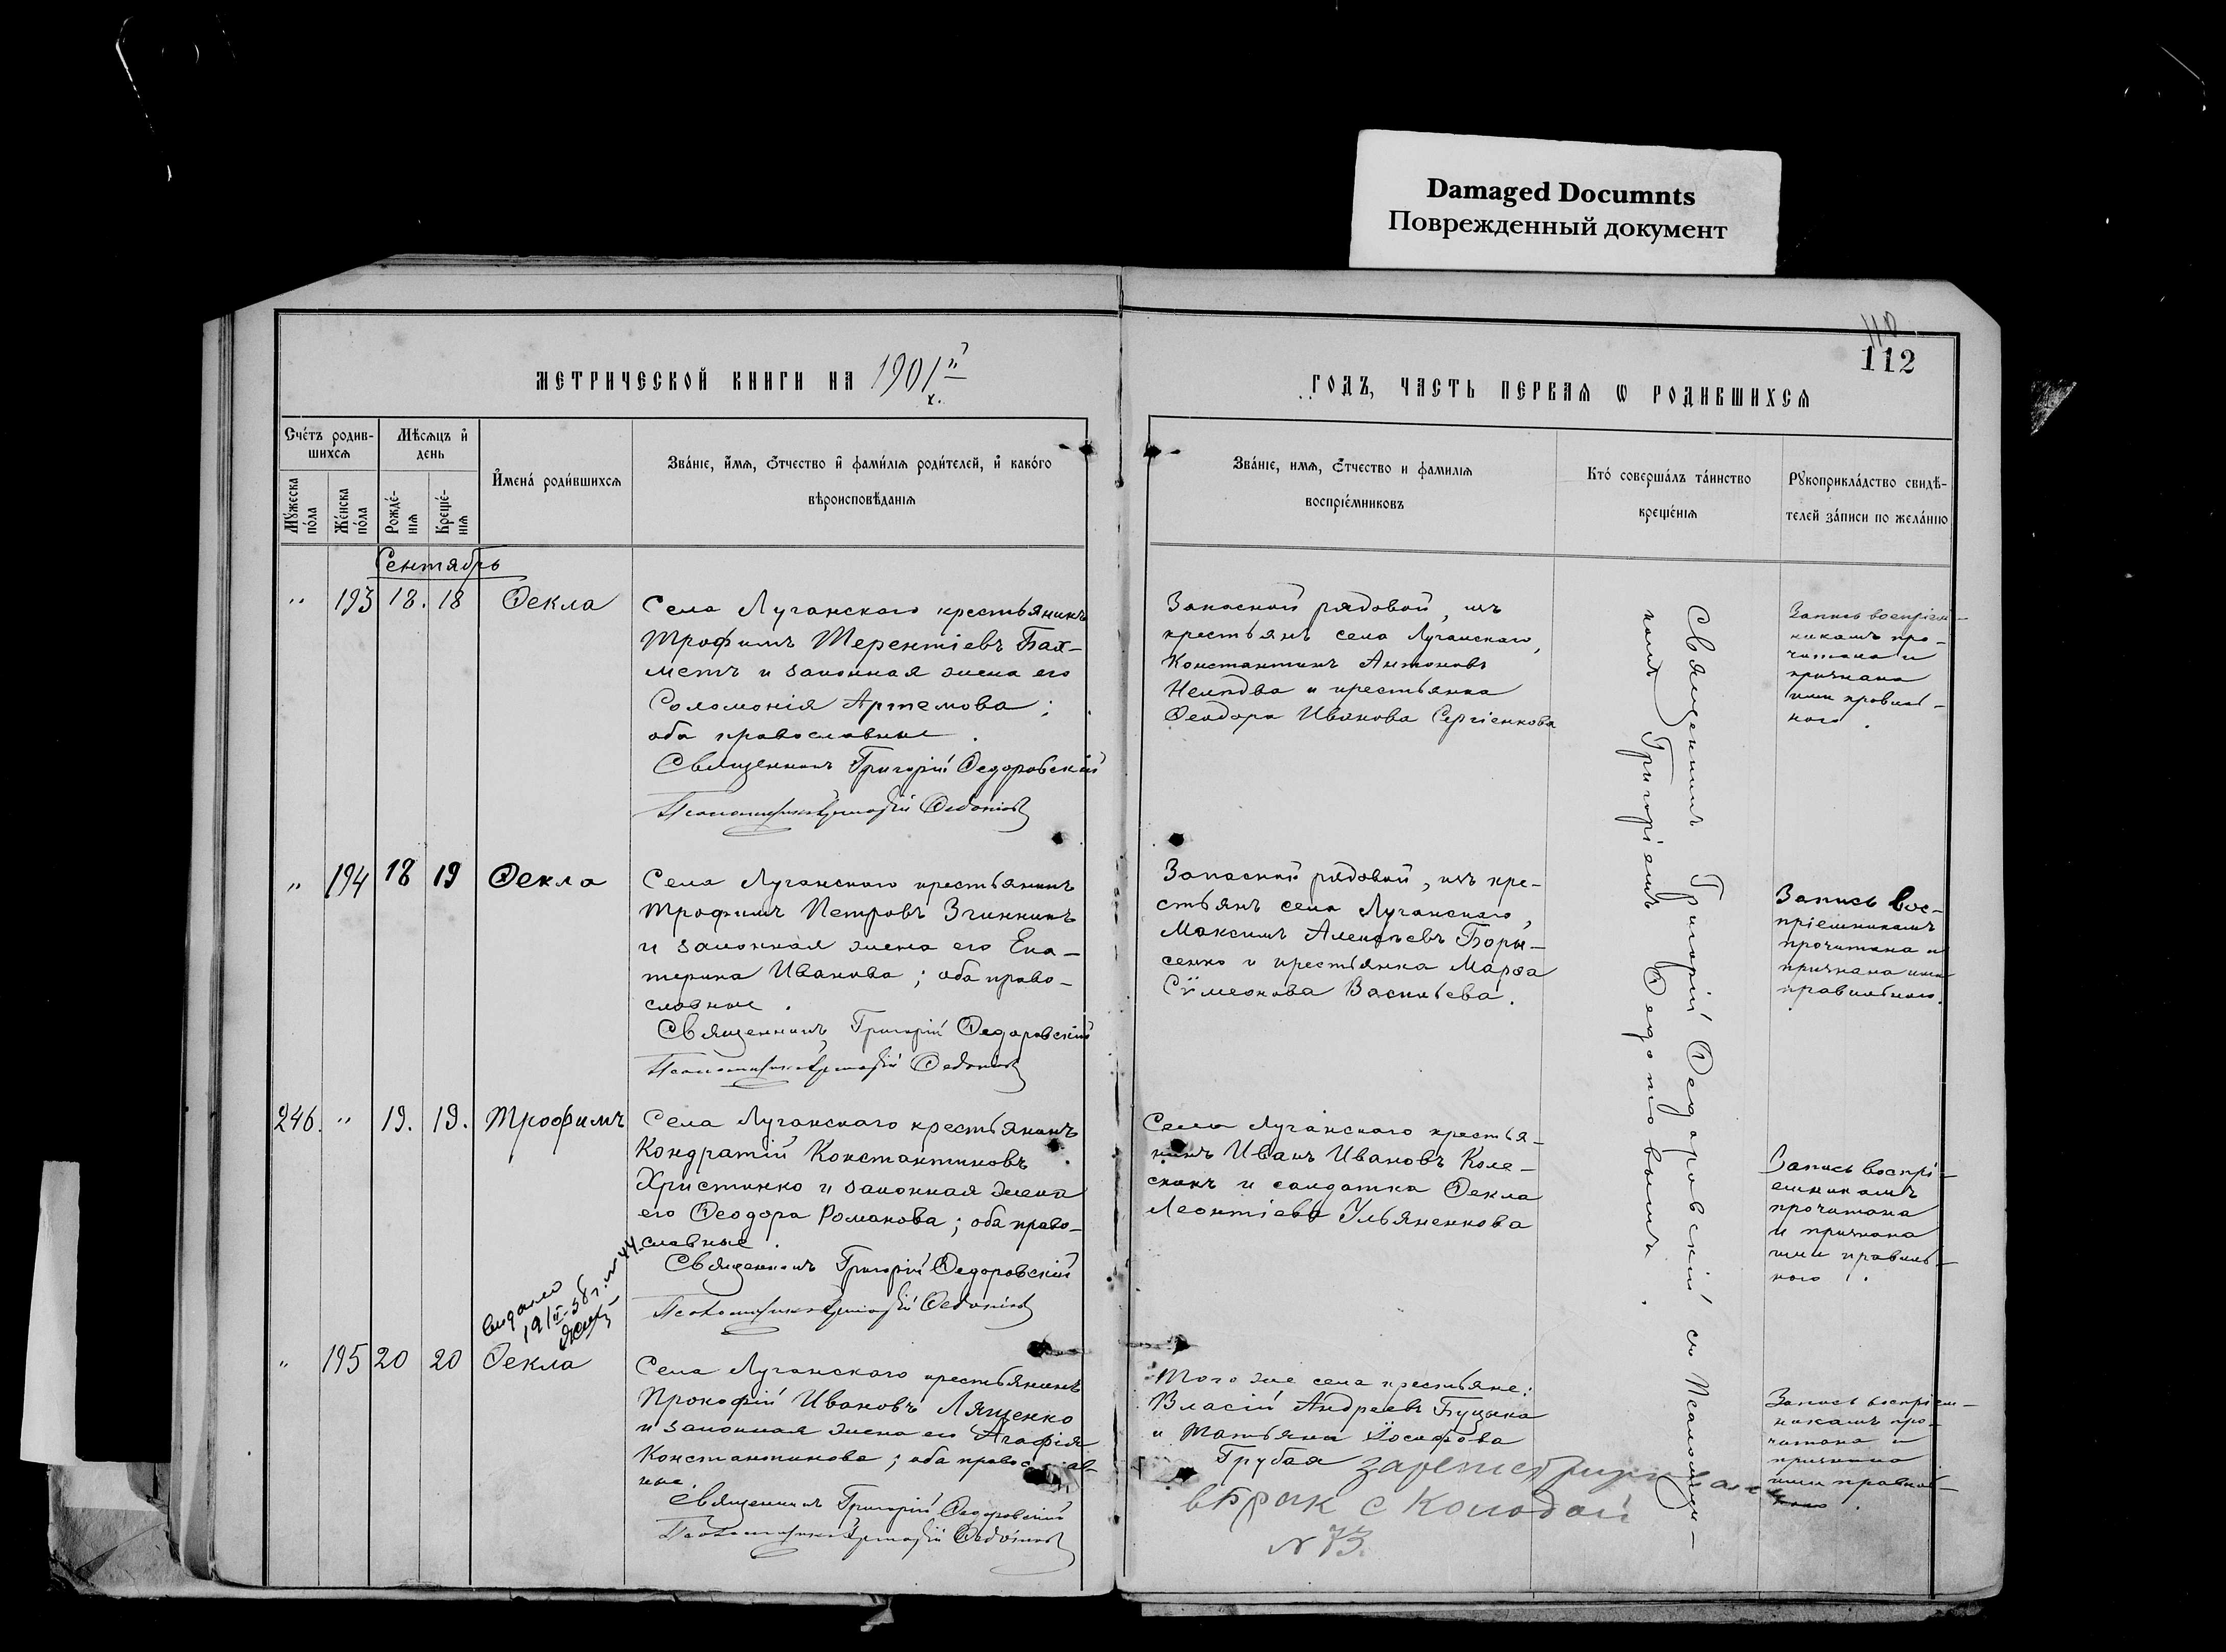 Damaged Documnts
Поврежденный документ
110
112
МЕТРИЧЕСКОЙ КНИГИ НА 1901й
г.
ГОДЪ, ЧАСТЬ ПЕРВАЯ Ѡ РОДИВШИХСЯ
Сче́тъ родив-
шихся
Му́жеска по́ла
Же́нска по́ла
Мѣсяцъ и҆ день
Рожде́-
нія
Креще́-
нія
И҆мена́ роди́вшихся
Зва́ніе, и҆́мя, ѻ҆́тчество и҆ фами́лія роди́телей, и҆ како́го
вѣроисповѣ́данія
Зва́ніе, имя, ѻ҆́тчество и фамилія
воспріе́мниковъ
Кто́ соверша́лъ та́инство
креще́нія
Рꙋкоприкла́дство свидѣ́-
телей за́писи по жела́нію
Сентябрь
" 193 18. 18 Ѳекла
Села Луганскаго крестьянинъ
Трофимъ Терентіевъ Бах-
метъ и законная жена его
Соломонія Артемова;
оба православные.
Священникъ Григорій Ѳедоровскій
Запасной рядовой, изъ
крестьянъ села Луганскаго,
Константинъ Антоновъ
и крестьянка
Ѳеодора Иванова Сергіенкова
Запись воспріем-
никамъ про-
читана и
признана
ими правиль-
ною.
" 194 18 19 Ѳекла
Села Луганскаго крестьянинъ
Трофимъ Петровъ Згинникъ
и законная жена его Ека-
терина Иванова; оба право-
славные.
Священникъ Григорій Ѳедоровскій
Запасной рядовой, изъ кре-
стьянъ села Луганскаго,
Максимъ Алексѣевъ Боры-
сенко и крестьянка Марѳа
Сѵмеонова Васильева.
Запись вос-
пріемникамъ
прочитана и
признана ими
правильною.
246. " 19. 19. Трофимъ
Села Луганскаго крестьянинъ
Кондратій Константиновъ
Христинко и законная жена
его Ѳеодора Романова; оба право-
славные.
Священникъ Григорій Ѳедоровскій
Села Луганскаго крестья-
нинъ Иванъ Ивановъ Коле-
сникъ и солдатка Ѳекла
Леонтіева Ульяненкова
Запись воспрі-
емникамъ
прочитана
и признана
ими правиль-
ною.
" 195 20 20 Ѳекла
Села Луганскаго крестьянинъ
Прокофій Ивановъ Лященко
и законная жена его Агафія
Константинова; оба православ-
ные.
Священникъ Григорій Ѳедоровскій
Того же села крестьяне:
Власій Андреевъ Буцыка
и Татьяна Іосифова
Грубая
Запись воспріем-
никамъ про-
читана и
признана
ими правиль-
ною.
Священникъ Григорій Ѳедоровскій съ Псаломщи-
комъ Григоріемъ
в брак с Колодой
N 73.